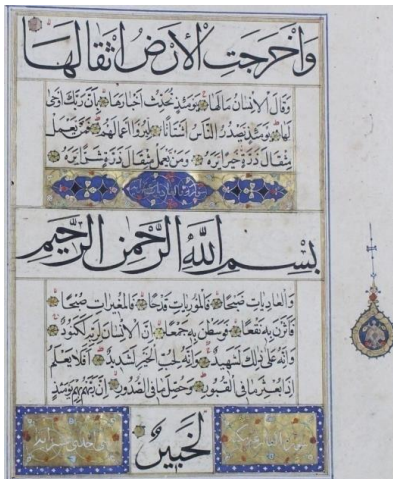 وَاَخْرَجَتِ الْاَرْضُ اَثْقَالَهَا
وَقَالَ الْاِنْسَانُ مَالَهَا يَوْمَئِذٍ تُحَدِّثُ اَخْبَارَهَا بِاَنَّ رَبَّكَ اَوْحٰى
لَهَا يَوْمَئِذٍ يَصْدُرُ النَّاسُ اَشْتَاتًا لِيُرَوْا اَعْمَالَهُمْ فَمَنْ يَعْمَلْ
مِثْقَالَ ذَرَّةٍ خَيْرًا يَرَهُ وَمَنْ يَعْمَلْ مِثْقَالَ ذَرَّةٍ شَرًّا يَرَهُ
بِسْمِ اللّٰهِ الرَّحْمٰنِ الرَّحِيْمِ
وَالْعَادِيَاتِ ضَبْحًا فَالْمُوْرِيَاتِ قَدْحًا فَالْمُغِيْرَاتِ صُبْحًا
فَاَثَرْنَ بِهِ نَقْعًا فَوَسَطْنَ بِهِ جَمْعًا اِنَّ الْاِنْسَانَ لِرَبِّهِ لَكَنُوْدٌ
وَاِنَّهُ عَلٰى ذٰلِكَ لَشَهِيْدٌ وَاِنَّهُ لِحُبِّ الْخَيْرِ لَشَدِيْدٌ اَفَلَا يَعْلَمُ
اِذَا بُعْثِرَ مَا فِى الْقُبُوْرِ وَحُصِّلَ مَا فِى الصُّدُوْرِ اِنَّ رَبَّهُمْ بِهِمْ يَوْمَئِذٍ
لَخَبِيْرٌ